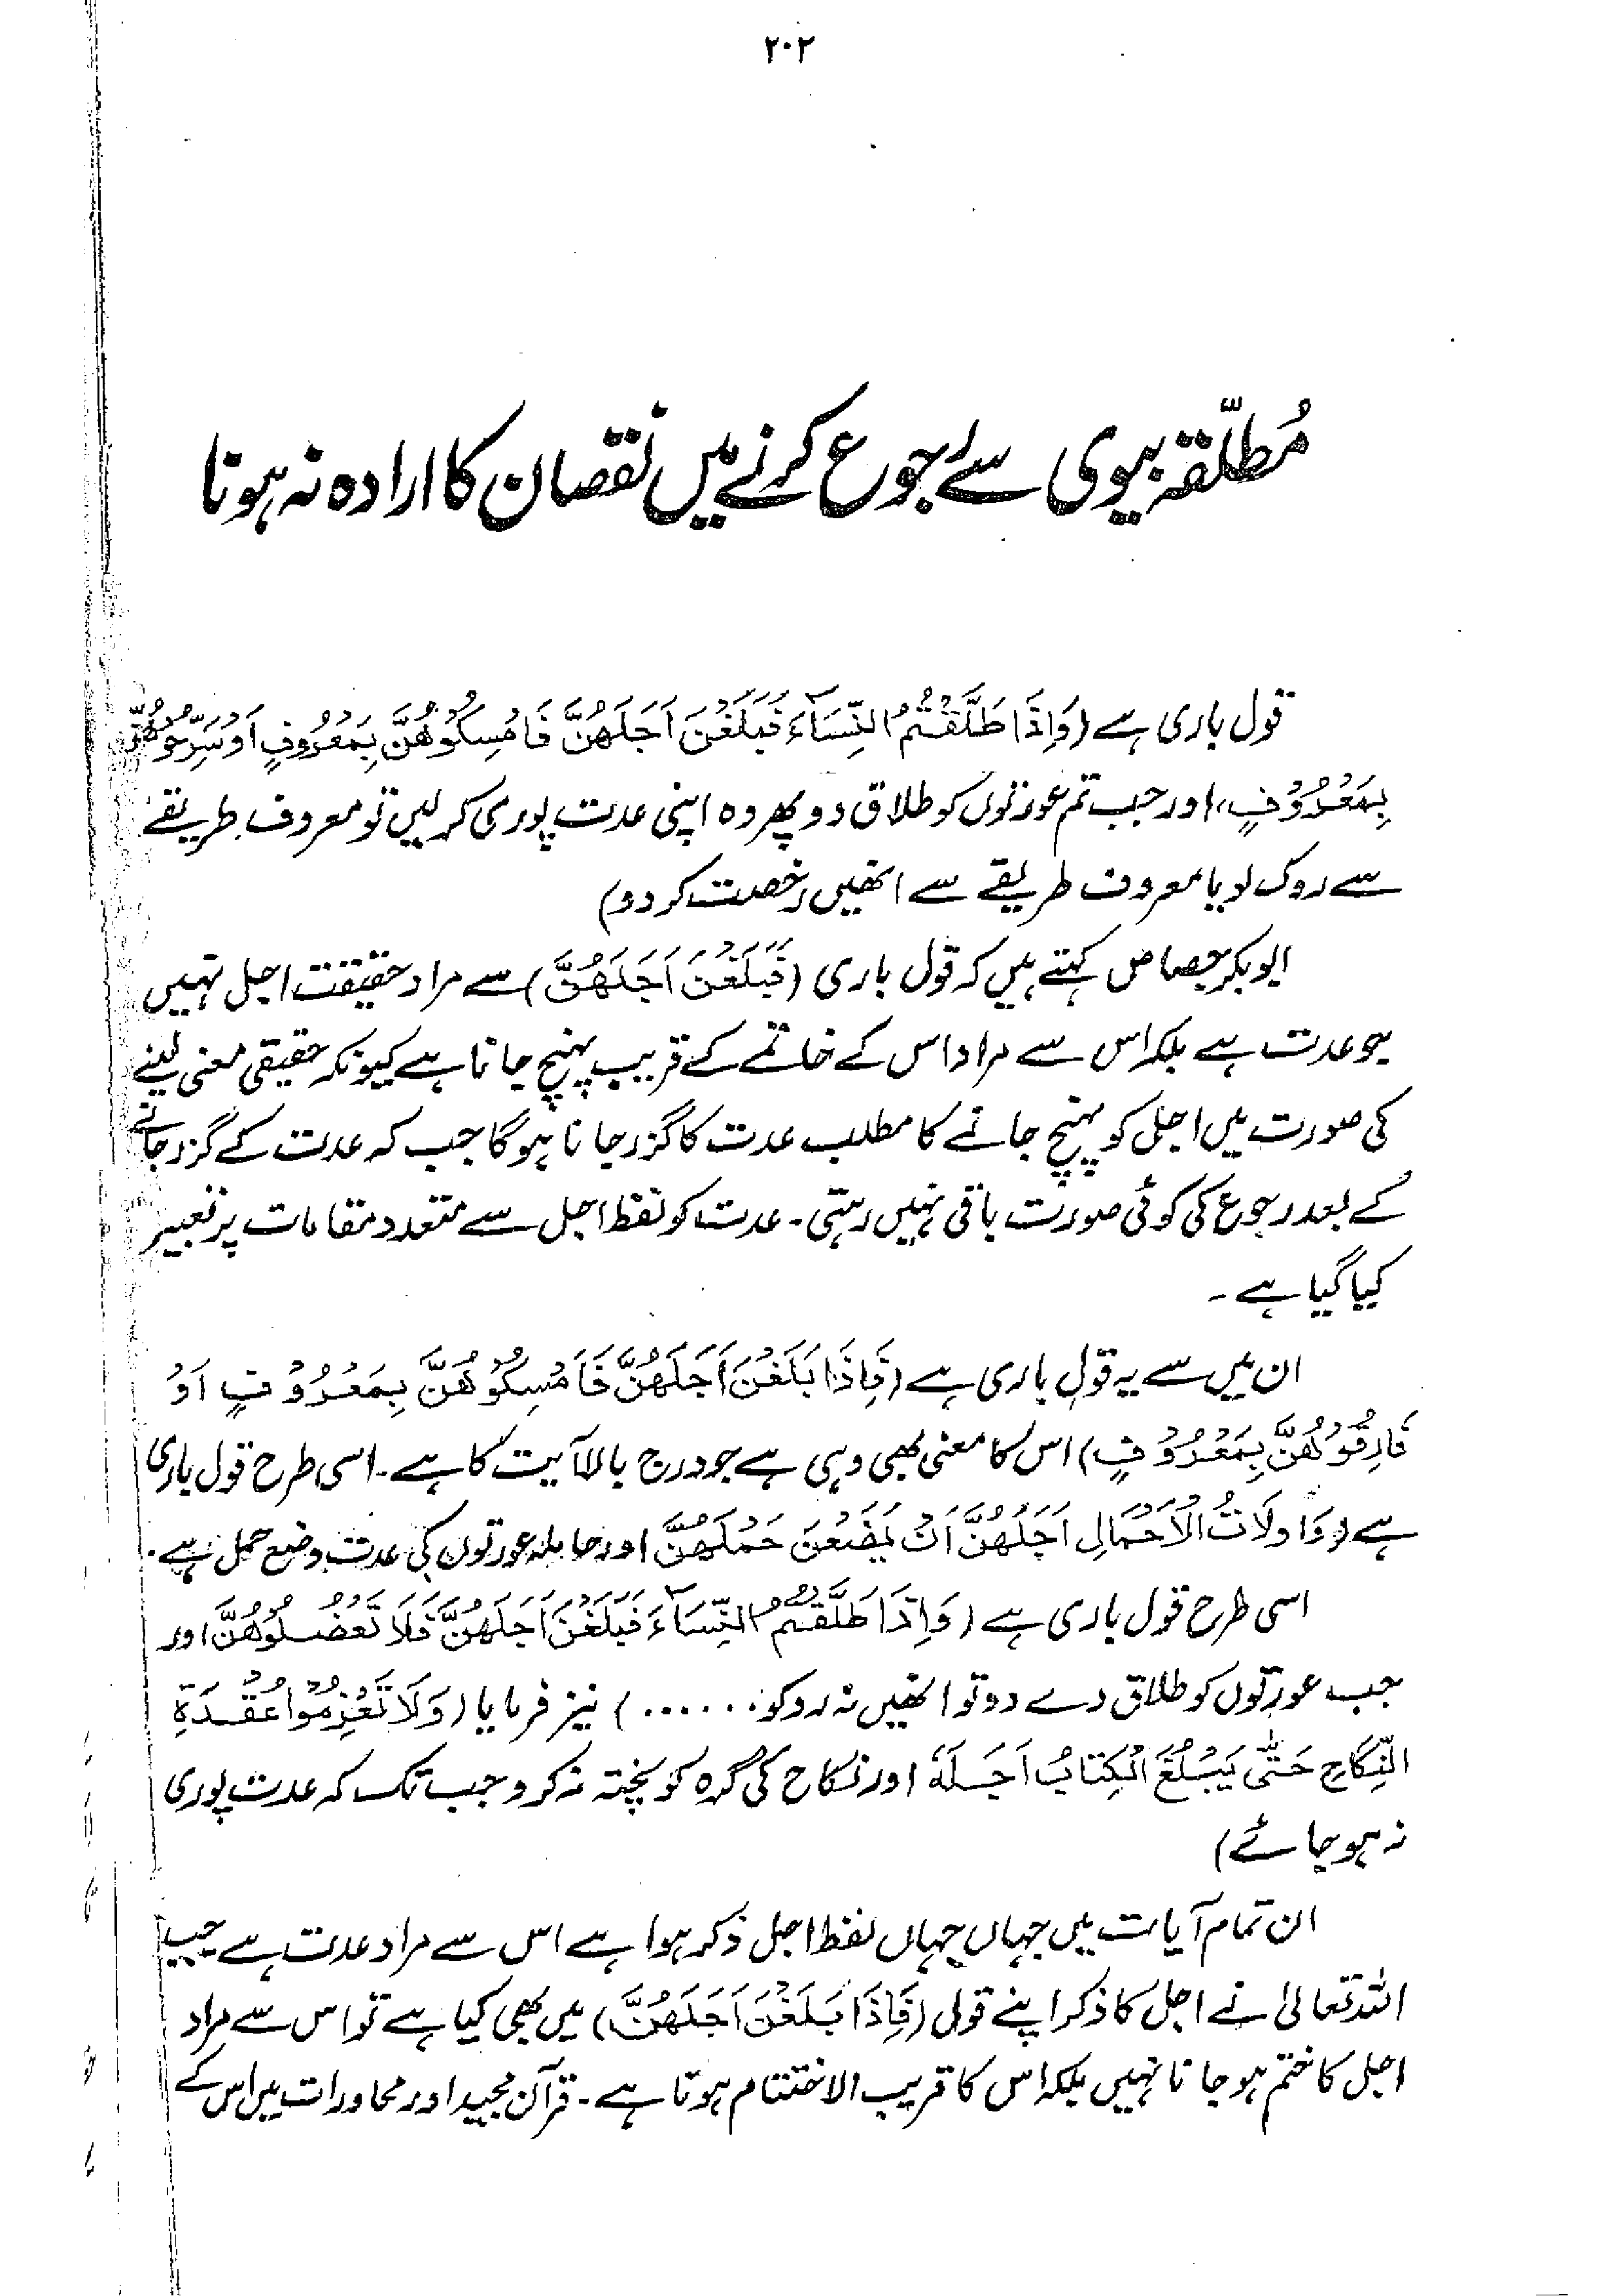 ۲۰۲
مُطلّقہ بیوی سے رجوع کرنے میں نقصان کا ارادہ نہ ہونا
قول باری ہے (وَاِذَا طَلَّقْتُمُ النِّسَآءَ فَبَلَغْنَ اَجَلَهُنَّ فَاَمْسِكُوْهُنَّ بِمَعْرُوْفٍ اَوْ سَرِّحُوْهُنَّ
بِمَعْرُوْفٍ، اور جب تم عورتوں کو طلاق دو پھر وہ اپنی عدت پوری کر لیں تو معروف طریقے
سے روک لو یا معروف طریقے سے انھیں رخصت کر دو)
ابوبکر جصاص کہتے ہیں کہ قول باری (فَبَلَغْنَ اَجَلَهُنَّ) سے مراد حقیقت اجل نہیں
جو عدت ہے بلکہ اس سے مراد اس کے خاتمے کے قریب پہنچ جانا ہے کیونکہ حقیقی معنی لینے
کی صورت میں اجل کو پہنچ جانے کا مطلب عدت کا گزر جانا ہوگا جب کہ عدت کے گزر جانے
کے بعد رجوع کی کوئی صورت باقی نہیں رہتی۔ عدت کو لفظ اجل سے متعدد مقامات پر تعبیر
کیا گیا ہے۔
ان میں سے یہ قول باری ہے (فَاِذَا بَلَغْنَ اَجَلَهُنَّ فَاَمْسِكُوْهُنَّ بِمَعْرُوْفٍ اَوْ
فَارِقُوْهُنَّ بِمَعْرُوْفٍ) اس کا معنی بھی وہی ہے جو درج بالا آیت کا ہے۔ اسی طرح قول باری
ہے (وَاُولَاتُ الْاَحْمَالِ اَجَلُهُنَّ اَنْ يَضَعْنَ حَمْلَهُنَّ اور حاملہ عورتوں کی عدت وضع حمل ہے۔
اسی طرح قول باری ہے (وَاِذَا طَلَّقْتُمُ النِّسَآءَ فَبَلَغْنَ اَجَلَهُنَّ فَلَا تَعْضُلُوْهُنَّ اور
جب عورتوں کو طلاق دے دو تو انھیں نہ روکو......) نیز فرمایا (وَلَا تَعْزِمُوْا عُقْدَةَ
النِّكَاحِ حَتّٰى يَبْلُغَ الْكِتَابُ اَجَلَهٗ اور نکاح کی گرہ کو پختہ نہ کرو جب تک کہ عدت پوری
نہ ہو جائے)
ان تمام آیات میں جہاں جہاں لفظ اجل ذکر ہوا ہے اس سے مراد عدت ہے جب
اللہ تعالیٰ نے اجل کا ذکر اپنے قول (فَاِذَا بَلَغْنَ اَجَلَهُنَّ) میں بھی کیا ہے تو اس سے مراد
اجل کا ختم ہو جانا نہیں بلکہ اس کا قریب الاختتام ہوتا ہے۔ قرآن مجید اور محاورات میں اس کے